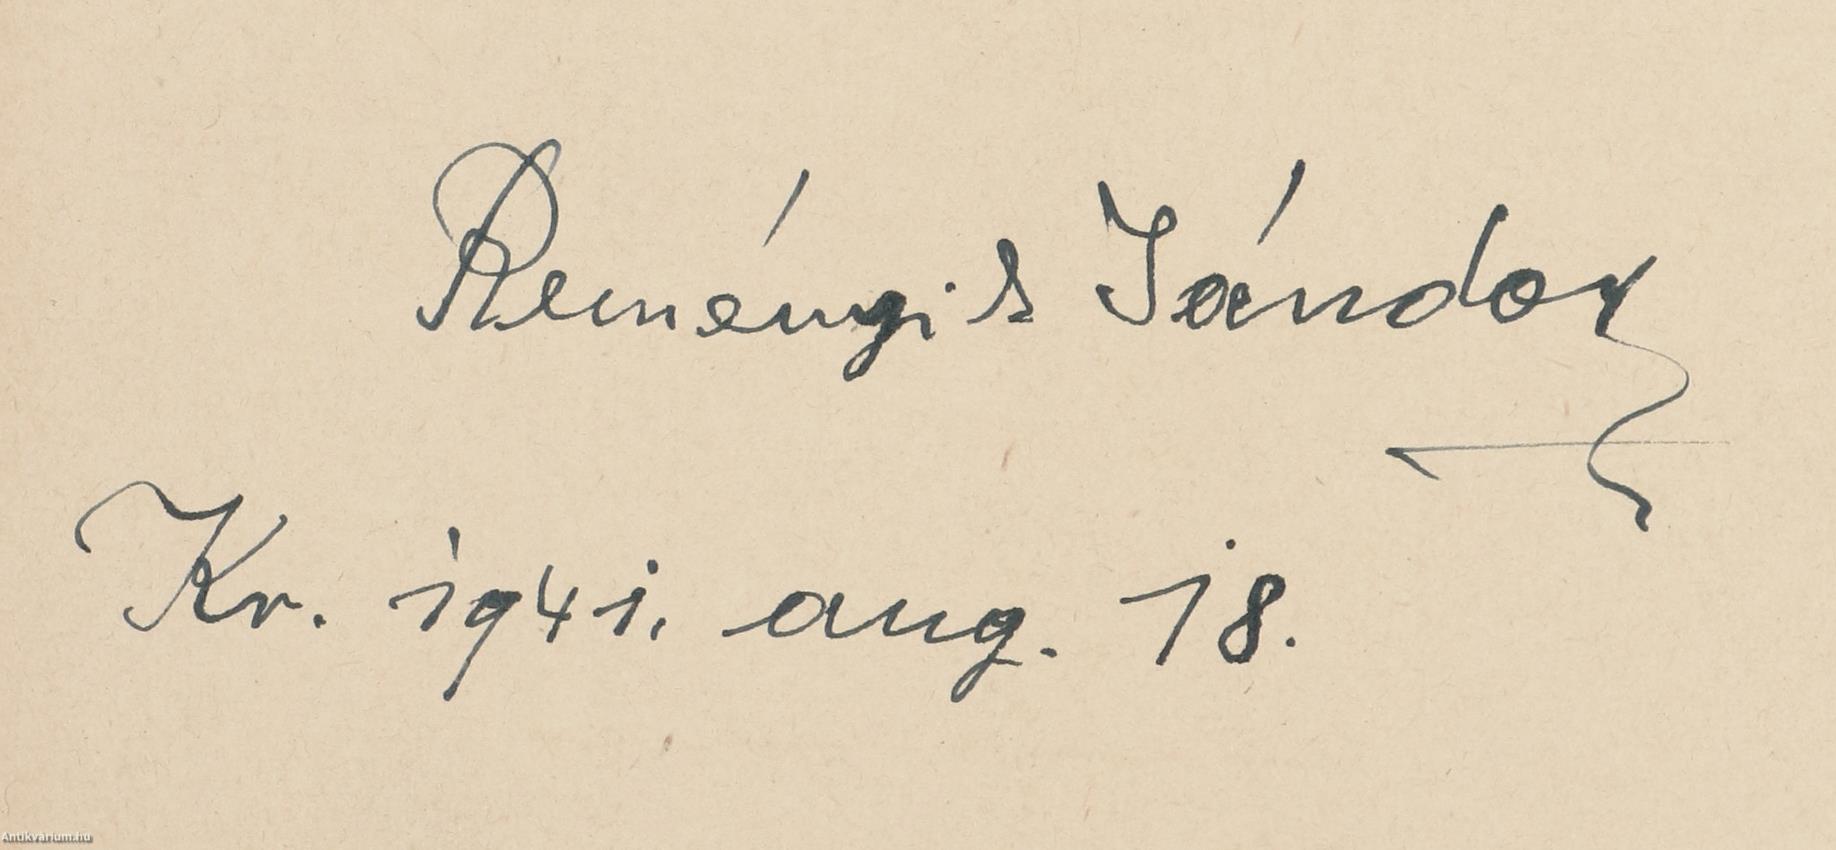 Reményik Sándor
Kv. 1941. aug. 18.
Antikvárium.hu